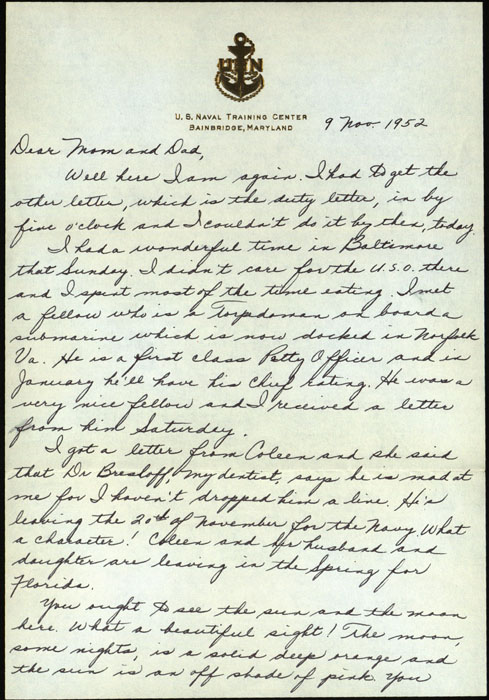 USN
U. S. NAVAL TRAINING CENTER
BAINBRIDGE, MARYLAND
9 Nov. 1952
Dear Mom and Dad,
Well here I am again. I had to get the
other letter, which is the duty letter, in by
five o'clock and I couldn't do it by then, today.
I had a wonderful time in Baltimore
that Sunday. I didn't care for the U.S.O. there
and I spent most of the time eating. I met
a fellow who is a Torpedoman on board a
submarine which is now docked in Norfolk
Va. He is a first class Petty Officer and in
January he'll have his Chief rating. He was a
very nice fellow and I received a letter
from him Saturday.
I got a letter from Coleen and she said
that Dr Bresloff, my dentist, says he is mad at
me for I haven't dropped him a line. He's
leaving the 20th of November for the Navy. What
a character! Coleen and her husband and
daughter are leaving in the Spring for
Florida.
You ought to see the sun and the moon
here. What a beautiful sight! The moon,
some nights, is a solid deep orange and
the sun is an off shade of pink. You